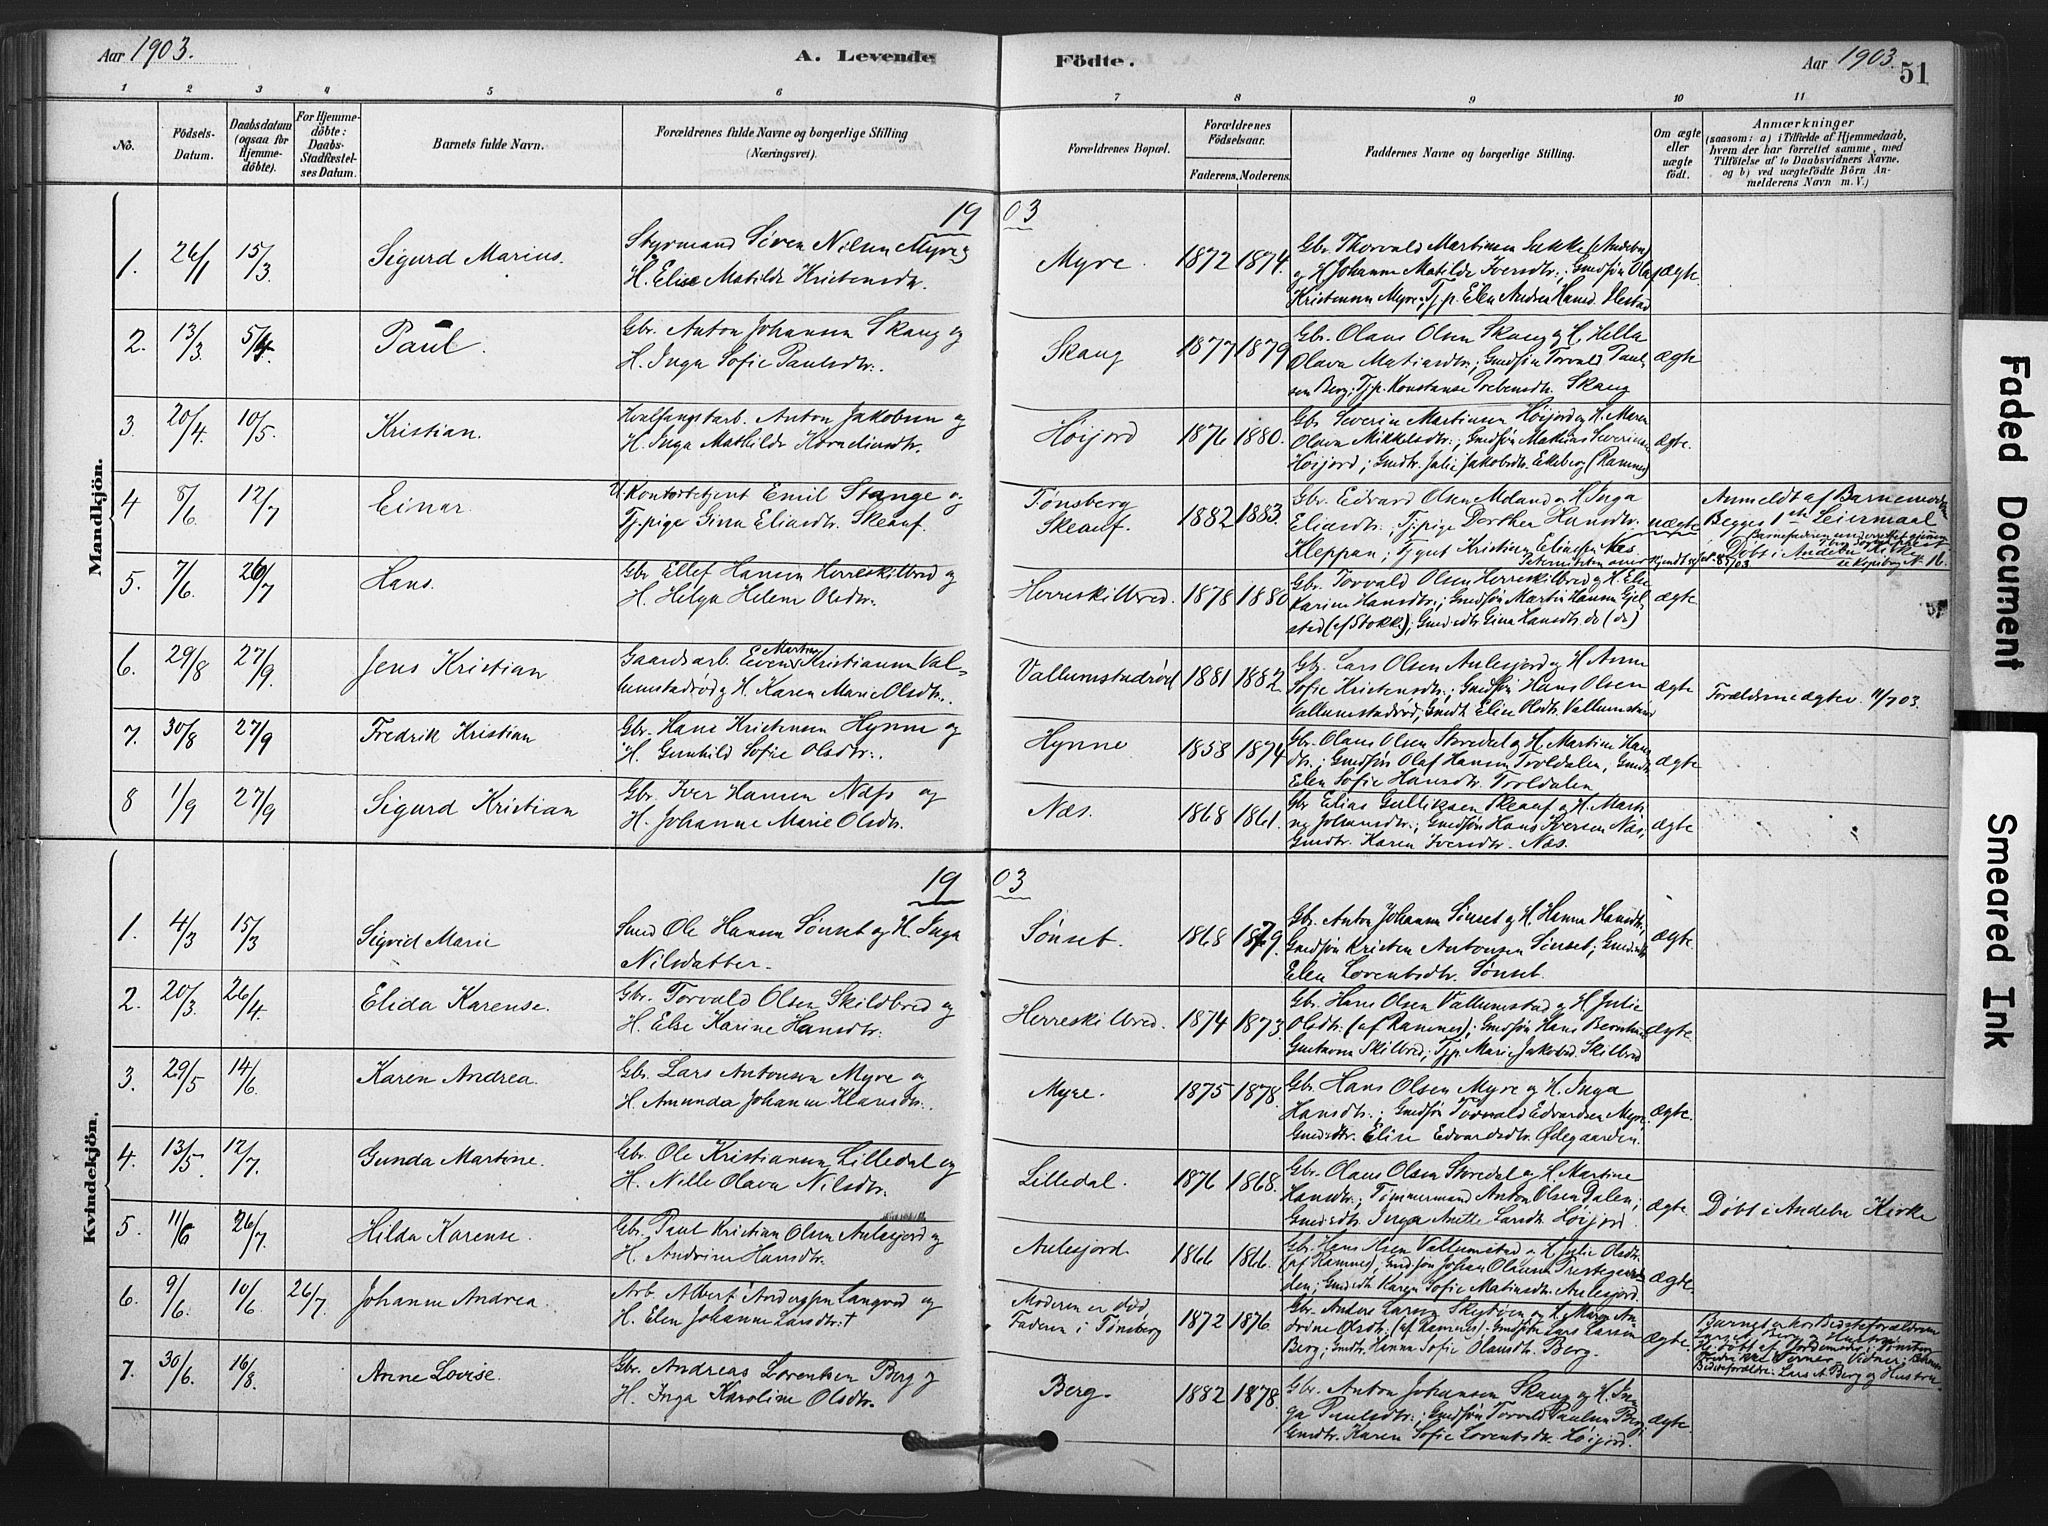 Aar 1903.
A. Levende Födte.
Aar 1903.
51
1 2 3 4 5 6 7 8 9 10 11
No.
Födsels-Datum.
Daabsdatum (ogsaa for Hjemmedöbte).
For Hjemmedöbte: Daabs-Stadfæstelses Datum.
Barnets fulde Navn.
Forældrenes fulde Navne og borgerlige Stilling (Næringsvei).
Forældrenes Bopæl.
Forældrenes Födselsaar.
Faderens. Moderens.
Faddernes Navne og borgerlige Stilling.
Om ægte eller uægte født.
Anmærkninger
(saasom: a) i Tilfælde af Hjemmedaab, hvem der har forrettet samme, med Tilføielse af to Daabsvidners Navne. og b) ved uægtefödte Börn Anmelderens Navn m. V.)
Mandkjön.
1903
1. 26/1 15/3 Sigurd Marius. Styrmand Søren Nilsen Myre og
H. Elise Matilde Kristensdtr. Myre. 1872 1874.
Gbr. Thorvald Martinsen Sukke (Andebu)
og H. Johanne Matilde Iversdtr.; Gmdsøn Olaf
Kristensen Myre; Tjp. Elen Andrea Hansd. Ilestad ægte
2. 13/3 5/4 Paul. Gbr. Anton Johansen Skaug og
H. Inga Sofie Paulsdtr. Skaug 1877 1879
Gbr. Olaus Olsen Skaug og H. Hella
Olava Matiasdtr.; Gmdsøn Torvald Paulsen
Berg; Tjp. Konstanse Prebensdtr. Skaug ægte
3. 20/4 10/5. Kristian. Hvalfangstarb. Anton Jakobsen og
H. Inga Mathilde Korneliusdtr. Høijord 1876 1880.
Gbr. Severin Martinsen Høijord og H. Maren
Olava Mikkelsdtr.; Gmdsøn Mathias Severinsen
Høijord; Gmdtr. Julie Jakobsdtr. Ekeberg (Ramnes) ægte.
4 8/6 12/7 Einar. U. Kontorbetjent Emil Stange og
Tj.pige Gina Eliasdtr. Skeauf. Tønsberg
Skeauf. 1882 1883.
Gbr. Edvard Olsen Meland og H. Inga
Eliasdtr.; Tj.pige Dorthea Hansdtr.
Kleppan; Tjgut Kristian Eliassen Næs. uægte
Anmeldt af Barnemoderen
Begges 1ste Leiermaal
Døbt i Andebu Kirke
5. 7/6 26/7 Hans. Gbr. Ellef Hansen Herreskilbred og
H. Helga Helene Olsdtr. Herreskilbred. 1878 1880
Gbr. Torvald Olsen Herreskilbred og H. Else
Karine Hansdtr.; Gmdsøn Martin Hansen Gjelstad
(af Stokke); Gmdsdtr. Gina Hansdtr. do (do) ægte
6. 29/8 27/9. Jens Kristian Gaardsarb. Even Martin Kristiansen Vallumstadrød
og H. Karen Marie Olsdtr. Vallumstadrød 1881 1882
Gbr. Lars Olsen Aulesjord og H. Anne
Sofie Kristensdtr.; Gmdsøn Hans Olsen
Vallumstadrød, Gmdtr. Elise Olsdtr. Vallumstad ægte
Forældrene ægtev. 11/7 03.
7. 30/8 27/9 Fredrik Kristian Gbr. Hans Kristensen Hynne og
H. Gunhild Sofie Olsdtr. Hynne 1858 1874
Gbr. Olaus Olsen Storedal og H. Martine Hansdtr.;
Gmdsøn Olaf Hansen Troldalen, Gmdtr.
Elen Sofie Hansdtr. Troldalen ægte
8 1/9 27/9 Sigurd Kristian Gbr. Iver Hansen Næss og
H. Johanne Marie Olsdtr. Næs. 1868 1861.
Gbr. Elias Gulliksen Skeauf og H. Martine
Johansdtr.; Gmdsøn Hans Iversen Næs;
Gmdtr. Karen Iversdtr. Næs. ægte
Kvindekjön.
1903
1. 4/3 15/3 Sigrid Marie Smed Ole Hansen Sønset og H. Inga
Nilsdatter. Sønset. 1868 1879.
Gbr. Anton Johansen Sønset og H. Hanna Hansdtr.
Gmdsøn Kristen Antonsen Sønset; Gmdsdtr.
Elen Lorentsdtr. Sønset. ægte.
2. 20/3 26/4 Elida Karense. Gbr. Torvald Olsen Skilbred og
H. Else Karine Hansdtr. Herreskilbred. 1874 1873.
Gbr. Hans Olsen Vallumstad og H. Julie
Olsdtr. (af Ramnes); Gmdsøn Hans Berntsen
Gustavsen Skilbred; Tjp. Marie Jakobsd. Skilbred ægte
3. 29/5 14/6 Karen Andrea. Gbr. Lars Antonsen Myre og
H. Amunda Johanne Klausdtr. Myre. 1875 1878.
Gbr. Hans Olsen Myre og H. Inga
Hansdtr.; Gmdsøn Torvald Edvardsen Myre;
Gmdsdtr. Elise Edvardsdtr. Ødegaarden. ægte.
4. 13/5. 12/7. Gunda Martine. Gbr. Ole Kristiansen Lilledal og
H. Nille Olava Nilsdtr. Lilledal. 1876 1868.
Gbr. Olaus Olsen Storedal og H. Martine
Hansdtr.; Tømmermand Anton Olsen Dalen;
Gmdsdtr. Inga Anette Larsdtr. Høijord. ægte.
Døbt i Andebu Kirke
5. 11/6 26/7 Hilda Karense. Gbr. Paul Kristian Olsen Aulesjord og
H. Andrine Hansdtr. Aulesjord. 1866 1866.
Gbr. Hans Olsen Vallumstad og H. Julie Olsdtr.
(af Ramnes); Gmdsøn Johan Olausen Prestegaarden;
Gmdsdtr. Karen Sofie Matiasdtr. Aulesjord ægte.
6. 9/6. 10/6. 26/7. Johanne Andrea. Arb. Albert Anderssen Langved og
H. Elen Johanne Larsdtr. † Moderen er død,
Faderen i Tønsberg 1872 1876.
Gbr. Anders Larsen Skjeggtveit og H. Maren Andrine
Olsdtr. (af Ramnes); Gmdsøn Lars Larsen
Berg; Gmdtr. Hanna Sofie Olausdtr. Berg. ægte.
Barnet er hos Bedsteforældrene
Lars A. Berg og Hustru.
Hj.døbt af Jordemoder i Tønsberg
Vidner:
Bedsteforældre: Lars A. Berg og Hustru.
7. 30/6. 16/8. Anne Lovise. Gbr. Andreas Lorentsen Berg og
H. Inga Karoline Olsdtr. Berg. 1882 1878.
Gbr. Anton Johansen Skaug og H. Inga
Paulsdtr.; Gmdsøn Torvald Paulsen Berg,
Gmdtr. Karen Sofie Lorentsdtr. Høijord. ægte.
Faded Document
Smeared Ink